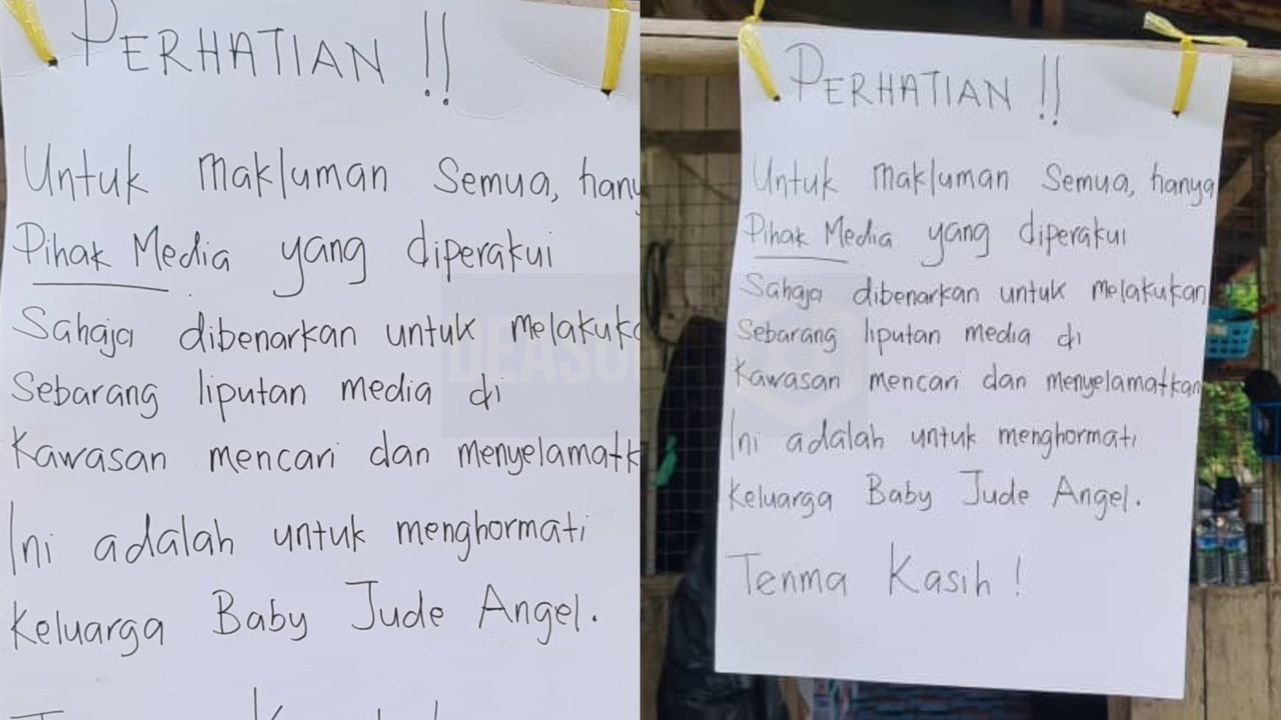 PERHATIAN !!
Untuk makluman Semua, hany
Pihak Media yang diperakui
Sahaja dibenarkan untuk melakuka
Sebarang liputan media di
Kawasan mencari dan menyelamatk
Ini adalah untuk menghormati
Keluarga Baby Jude Angel.
PERHATIAN !!
Untuk makluman Semua, hanya
Pihak Media yang diperakui
Sahaja dibenarkan untuk melakukan
Sebarang liputan media di
Kawasan mencari dan menyelamatkan
Ini adalah untuk menghormati
Keluarga Baby Jude Angel.
Terima Kasih !